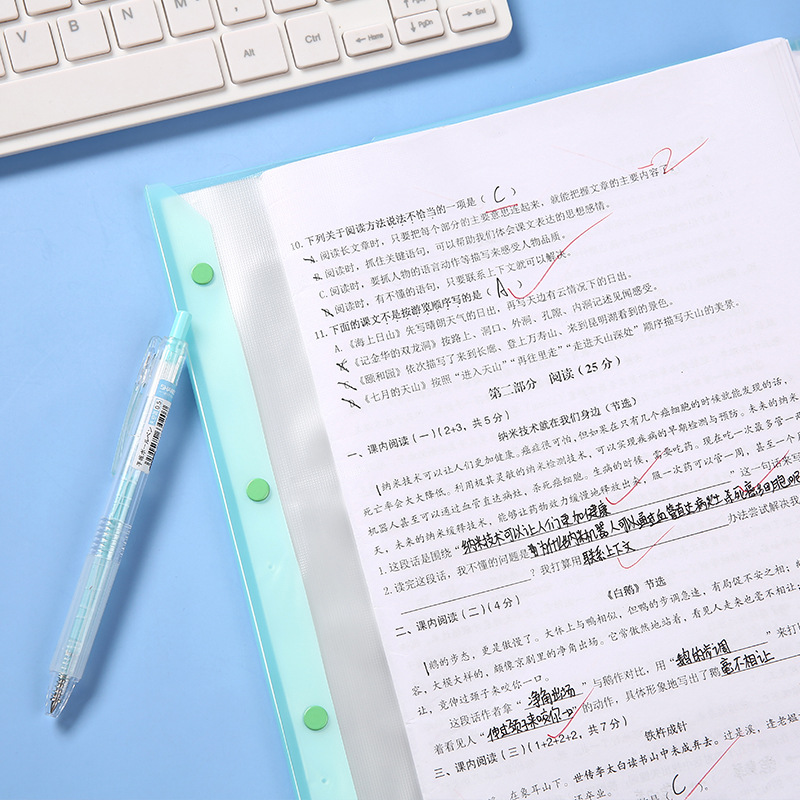 V
B
N
M
Alt
Ctrl
Home
PgUp
PgDn
End
10. 下列关于阅读方法说法不恰当的一项是（ C ）
A. 阅读长文章时，只要把每个部分的主要意思连起来，就能把握文章的主要内容了。
B. 阅读时，抓住关键语句，可以帮助我们体会课文表达的思想感情。
C. 阅读时，要抓人物的语言动作等描写来感受人物品质。
D. 阅读时，有不懂的语句，只要联系上下文就可以解决。
11. 下面的课文不是按游览顺序写的是（ A ）
A.《海上日出》先写晴朗天气的日出，再写天边有云情况下的日出。
B.《记金华的双龙洞》按路上、洞口、外洞、孔隙、内洞记述见闻感受。
C.《颐和园》依次描写了来到长廊、登上万寿山、来到昆明湖看到的景色。
D.《七月的天山》按照“进入天山”“再往里走”“走进天山深处”顺序描写天山的美景。
第二部分 阅读（25 分）
一、课内阅读（一）(2+3，共 5 分)
纳米技术就在我们身边（节选）
纳米技术可以让人们更加健康。癌症很可怕，但如果在只有几个癌细胞的时候就能发现的话，
死亡率会大大降低。利用极其灵敏的纳米检测技术，可以实现疾病的早期检测与预防。未来的纳米
机器人甚至可以通过血管直达病灶，杀死癌细胞。生病的时候，需要吃药。现在吃一次药多管一
天，未来的纳米缓释技术，能够让药物效力缓慢地释放出来，服一次药可以管一周，甚至一个
1. 这段话是围绕“纳米技术可以让人们更加健康”这一句话来写
2. 读完这段话，我不懂的问题是为什么纳米机器人可以通过血管直达病灶，杀死癌细胞呢
？我打算用联系上下文办法尝试解决我
二、课内阅读（二）(4 分)
《白鹅》节选
鹅的步态，更是傲慢了。大体上与鸭相似，但鸭的步调急速，有局促不安之相；
容，大模大样的，颇像京剧里的净角出场。它常傲然地站着，看见人走来也毫不相让
让，竟伸过颈子来咬你一口。
这段话作者拿“净角出场”与鹅作对比，用“ ”来打
着看见人“伸过颈子来咬你一口”的动作，具体形象地写出了鹅毫不相让
三、课内阅读（三）(1+2+2+2，共 7 分)
铁杵成针
在象耳山下。世传李太白读书山中，未成弃去。过是溪，
C